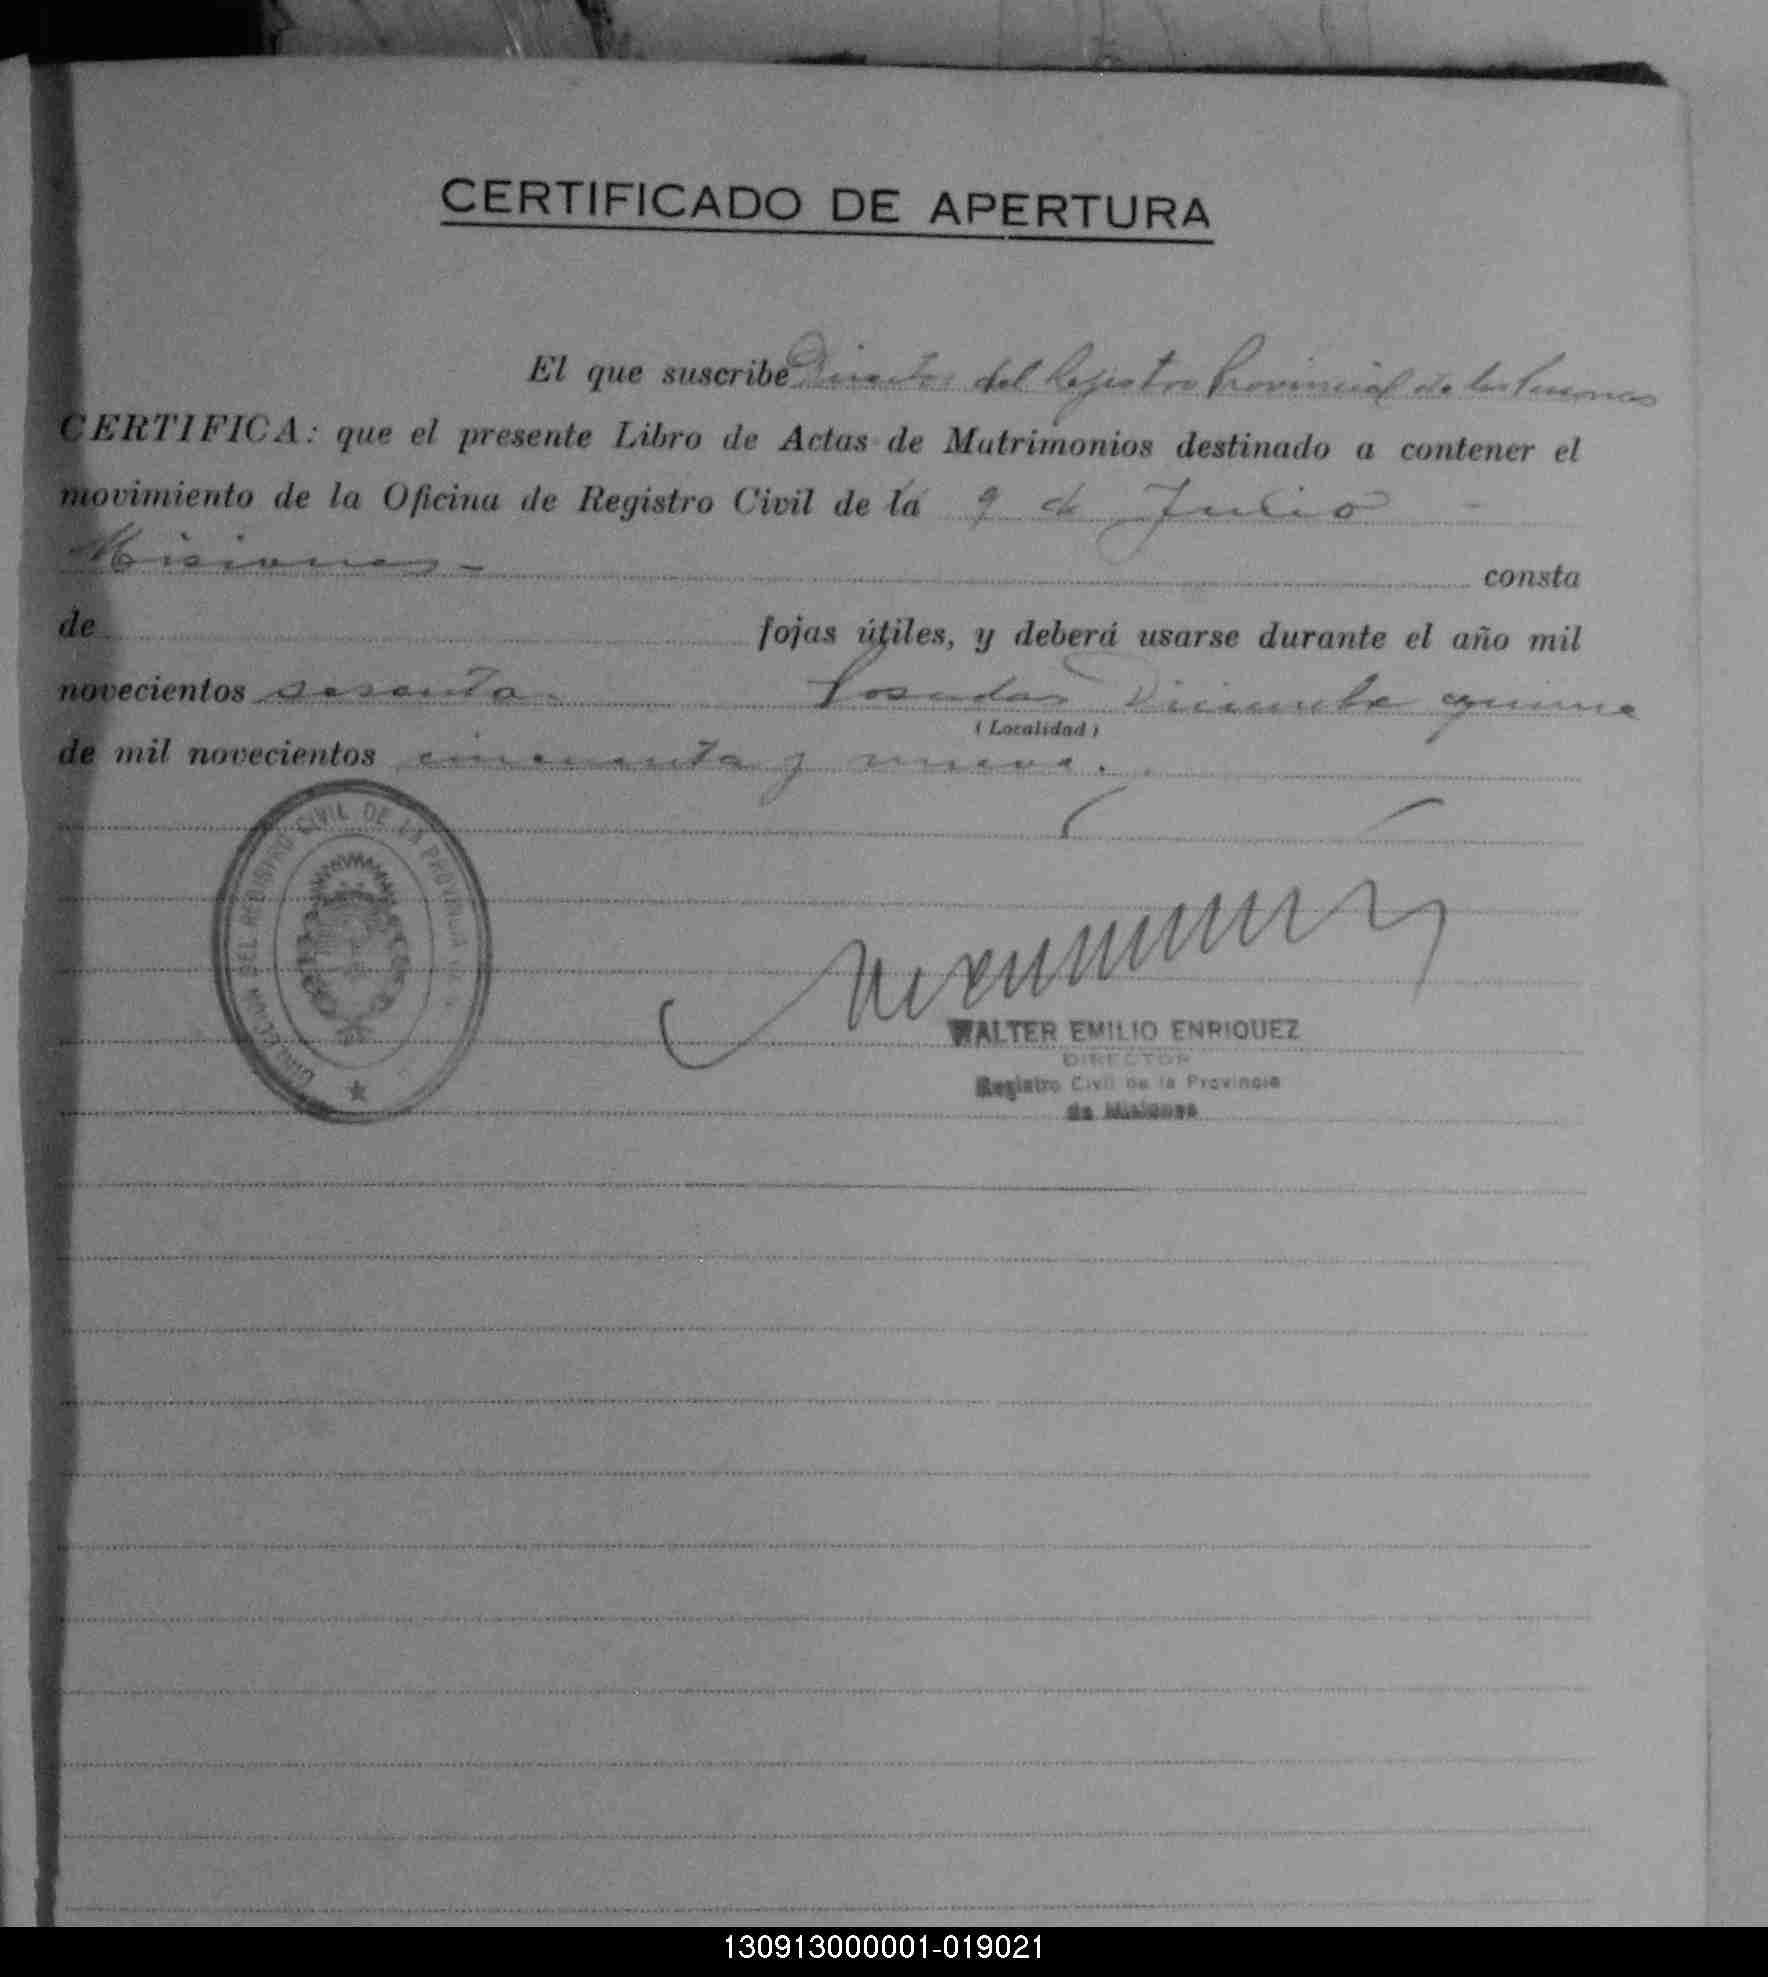 CERTIFICADO DE APERTURA
El que suscribe Director del Registro Provincial de las Personas
CERTIFICA: que el presente Libro de Actas de Matrimonios destinado a contener el
movimiento de la Oficina de Registro Civil de la 9 de Julio -
Misiones - consta
de fojas útiles, y deberá usarse durante el año mil
novecientos sesenta. Posadas Diciembre quince
(Localidad)
de mil novecientos cincuenta y nueve.
DIRECCION DEL REGISTRO CIVIL DE LA PROVINCIA
WALTER EMILIO ENRIQUEZ
DIRECTOR
Registro Civil de la Provincia
de Misiones
130913000001-019021